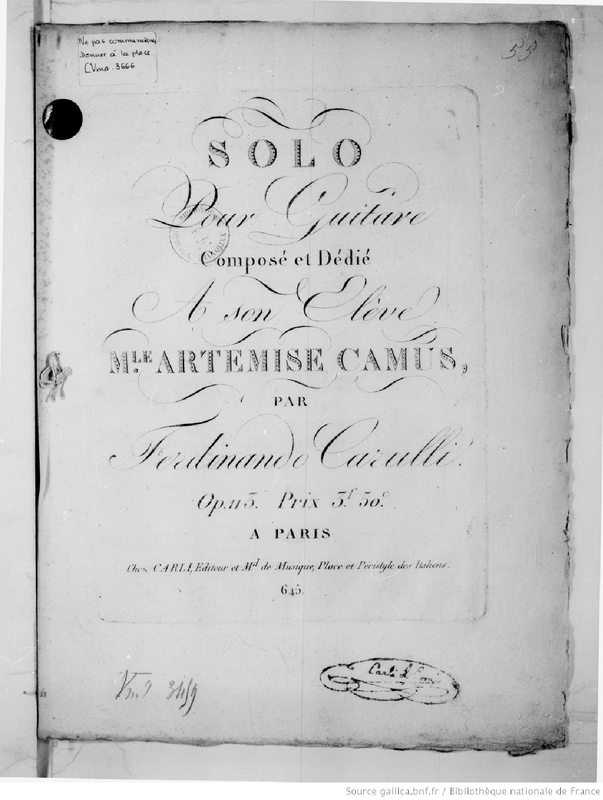 Ne pas communiquer
Donner à la place
[Vma. 3666
55
SOLO
Pour Guitare
Composé et Dédié
A son Elève
M.LLE ARTEMISE CAMUS,
PAR
Ferdinando Carulli.
Op. 113. Prix 3f 50c
A PARIS
Chez CARLI, Editeur et Md de Musique, Place et Péristyle des Italiens.
645.
Vm9 3459
Source gallica.bnf.fr / Bibliothèque nationale de France